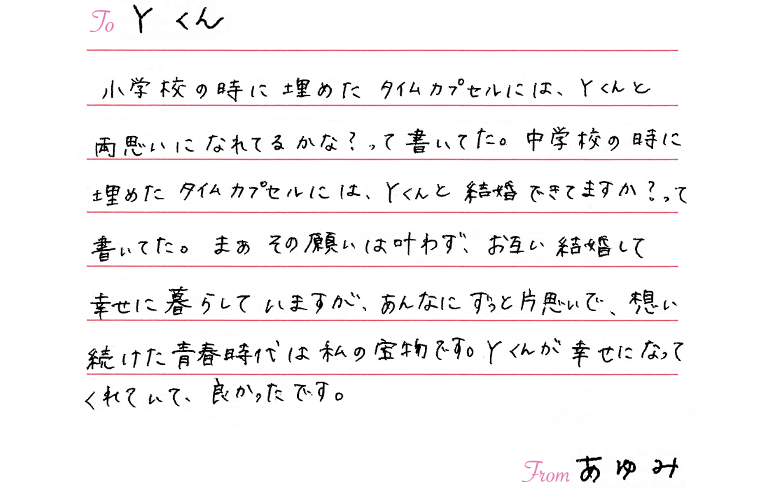 To Yくん
小学校の時に埋めたタイムカプセルには、Yくんと
両思いになれてるかな？って書いてた。中学校の時に
埋めたタイムカプセルには、Yくんと結婚できてますか？って
書いてた。まぁその願いは叶わず、お互い結婚して
幸せに暮らしていますが、あんなにずっと片思いで、想い
続けた青春時代は私の宝物です。Yくんが幸せになって
くれていて、良かったです。
From あゆみ